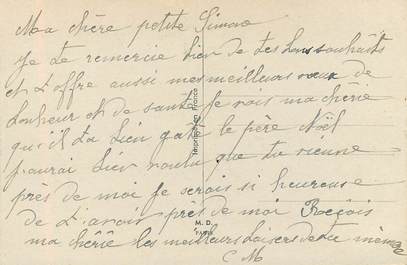 Ma chère petite Simone
Je te remercie bien de tes bons souhaits
et t'offre aussi mes meilleurs vœux de
bonheur et de santé je vois ma chérie
qu'il t'a bien gaté le père Noël
j'aurai bien voulu que tu vienne
près de moi je serais si heureuse
de t'avoir près de moi Reçois
ma chérie les meilleurs baisers de ta mémère
C M
M. D.
PARIS